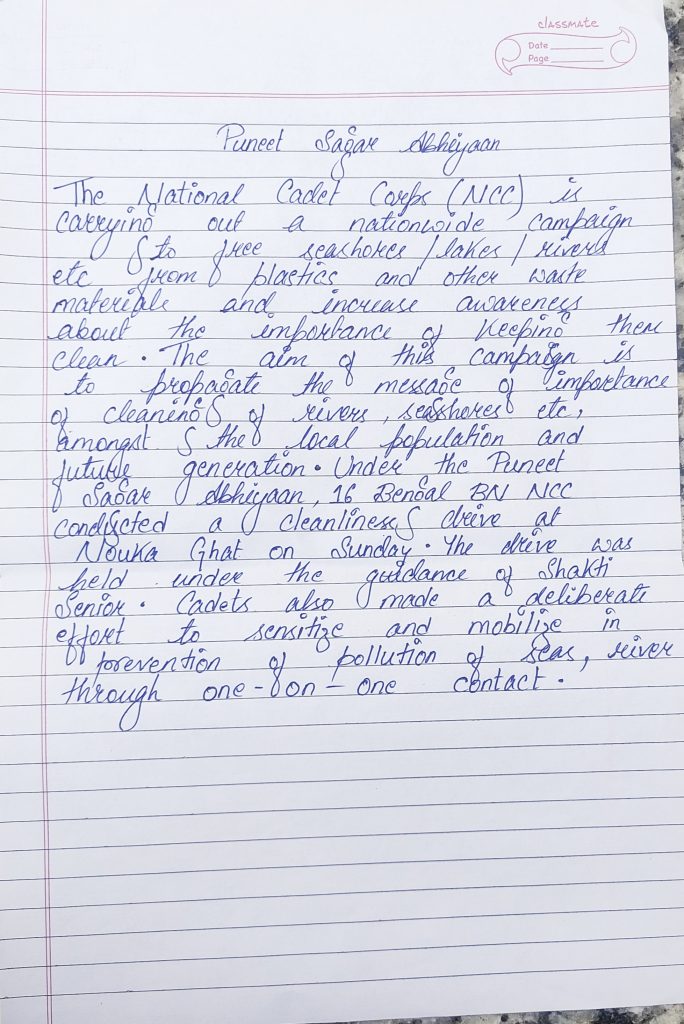 classmate
Date
Page
Puneet Sagar Abhiyaan
The National Cadet Corps (NCC) is
carrying out a nationwide campaign
to free seashores / lakes / rivers
etc from plastics and other waste
materials and increase awareness
about the importance of keeping them
clean. The aim of this campaign is
to propagate the message of importance
of cleaning of rivers, seasshores etc,
amongst the local population and
future generation. Under the Puneet
Sagar Abhiyaan, 16 Bengal BN NCC
conducted a cleanliness drive at
Nouka Ghat on Sunday. The drive was
held under the guidance of Shakti
Senior. Cadets also made a deliberate
effort to sensitize and mobilize in
prevention of pollution of seas, river
through one-on-one contact.